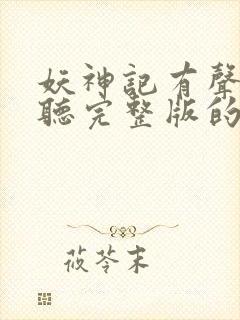 妖神記有聲
聽完整版的
莜苓末